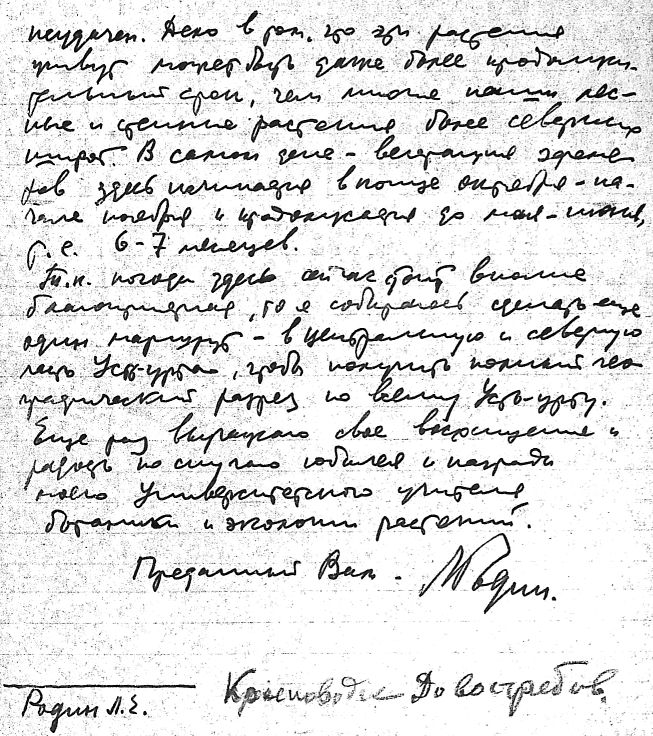 неудачен. Дело в том, что эти растения
живут может быть даже более продолжи-
тельный срок, чем многие наши лес-
ные и степные растения более северных
широт. В самом деле - вегетация эфеме
ров здесь начинается в конце октября - на-
чале ноября и продолжается до мая - июня,
т. е. 6-7 месяцев.
Т.к. погода здесь сейчас стоит вполне
благоприятная, то я собираюсь сделать еще
один маршрут - в центральную и северную
часть Усть-урта, чтобы получить полный гео
графический разрез по всему Усть-урту.
Еще раз выражаю свое восхищение и
радость по случаю юбилея и награды
моего Университетского учителя
ботаники и экологии растений.
Преданный Вам - Л Родин.
Красноводск До востребов.
Родин Л.Е.